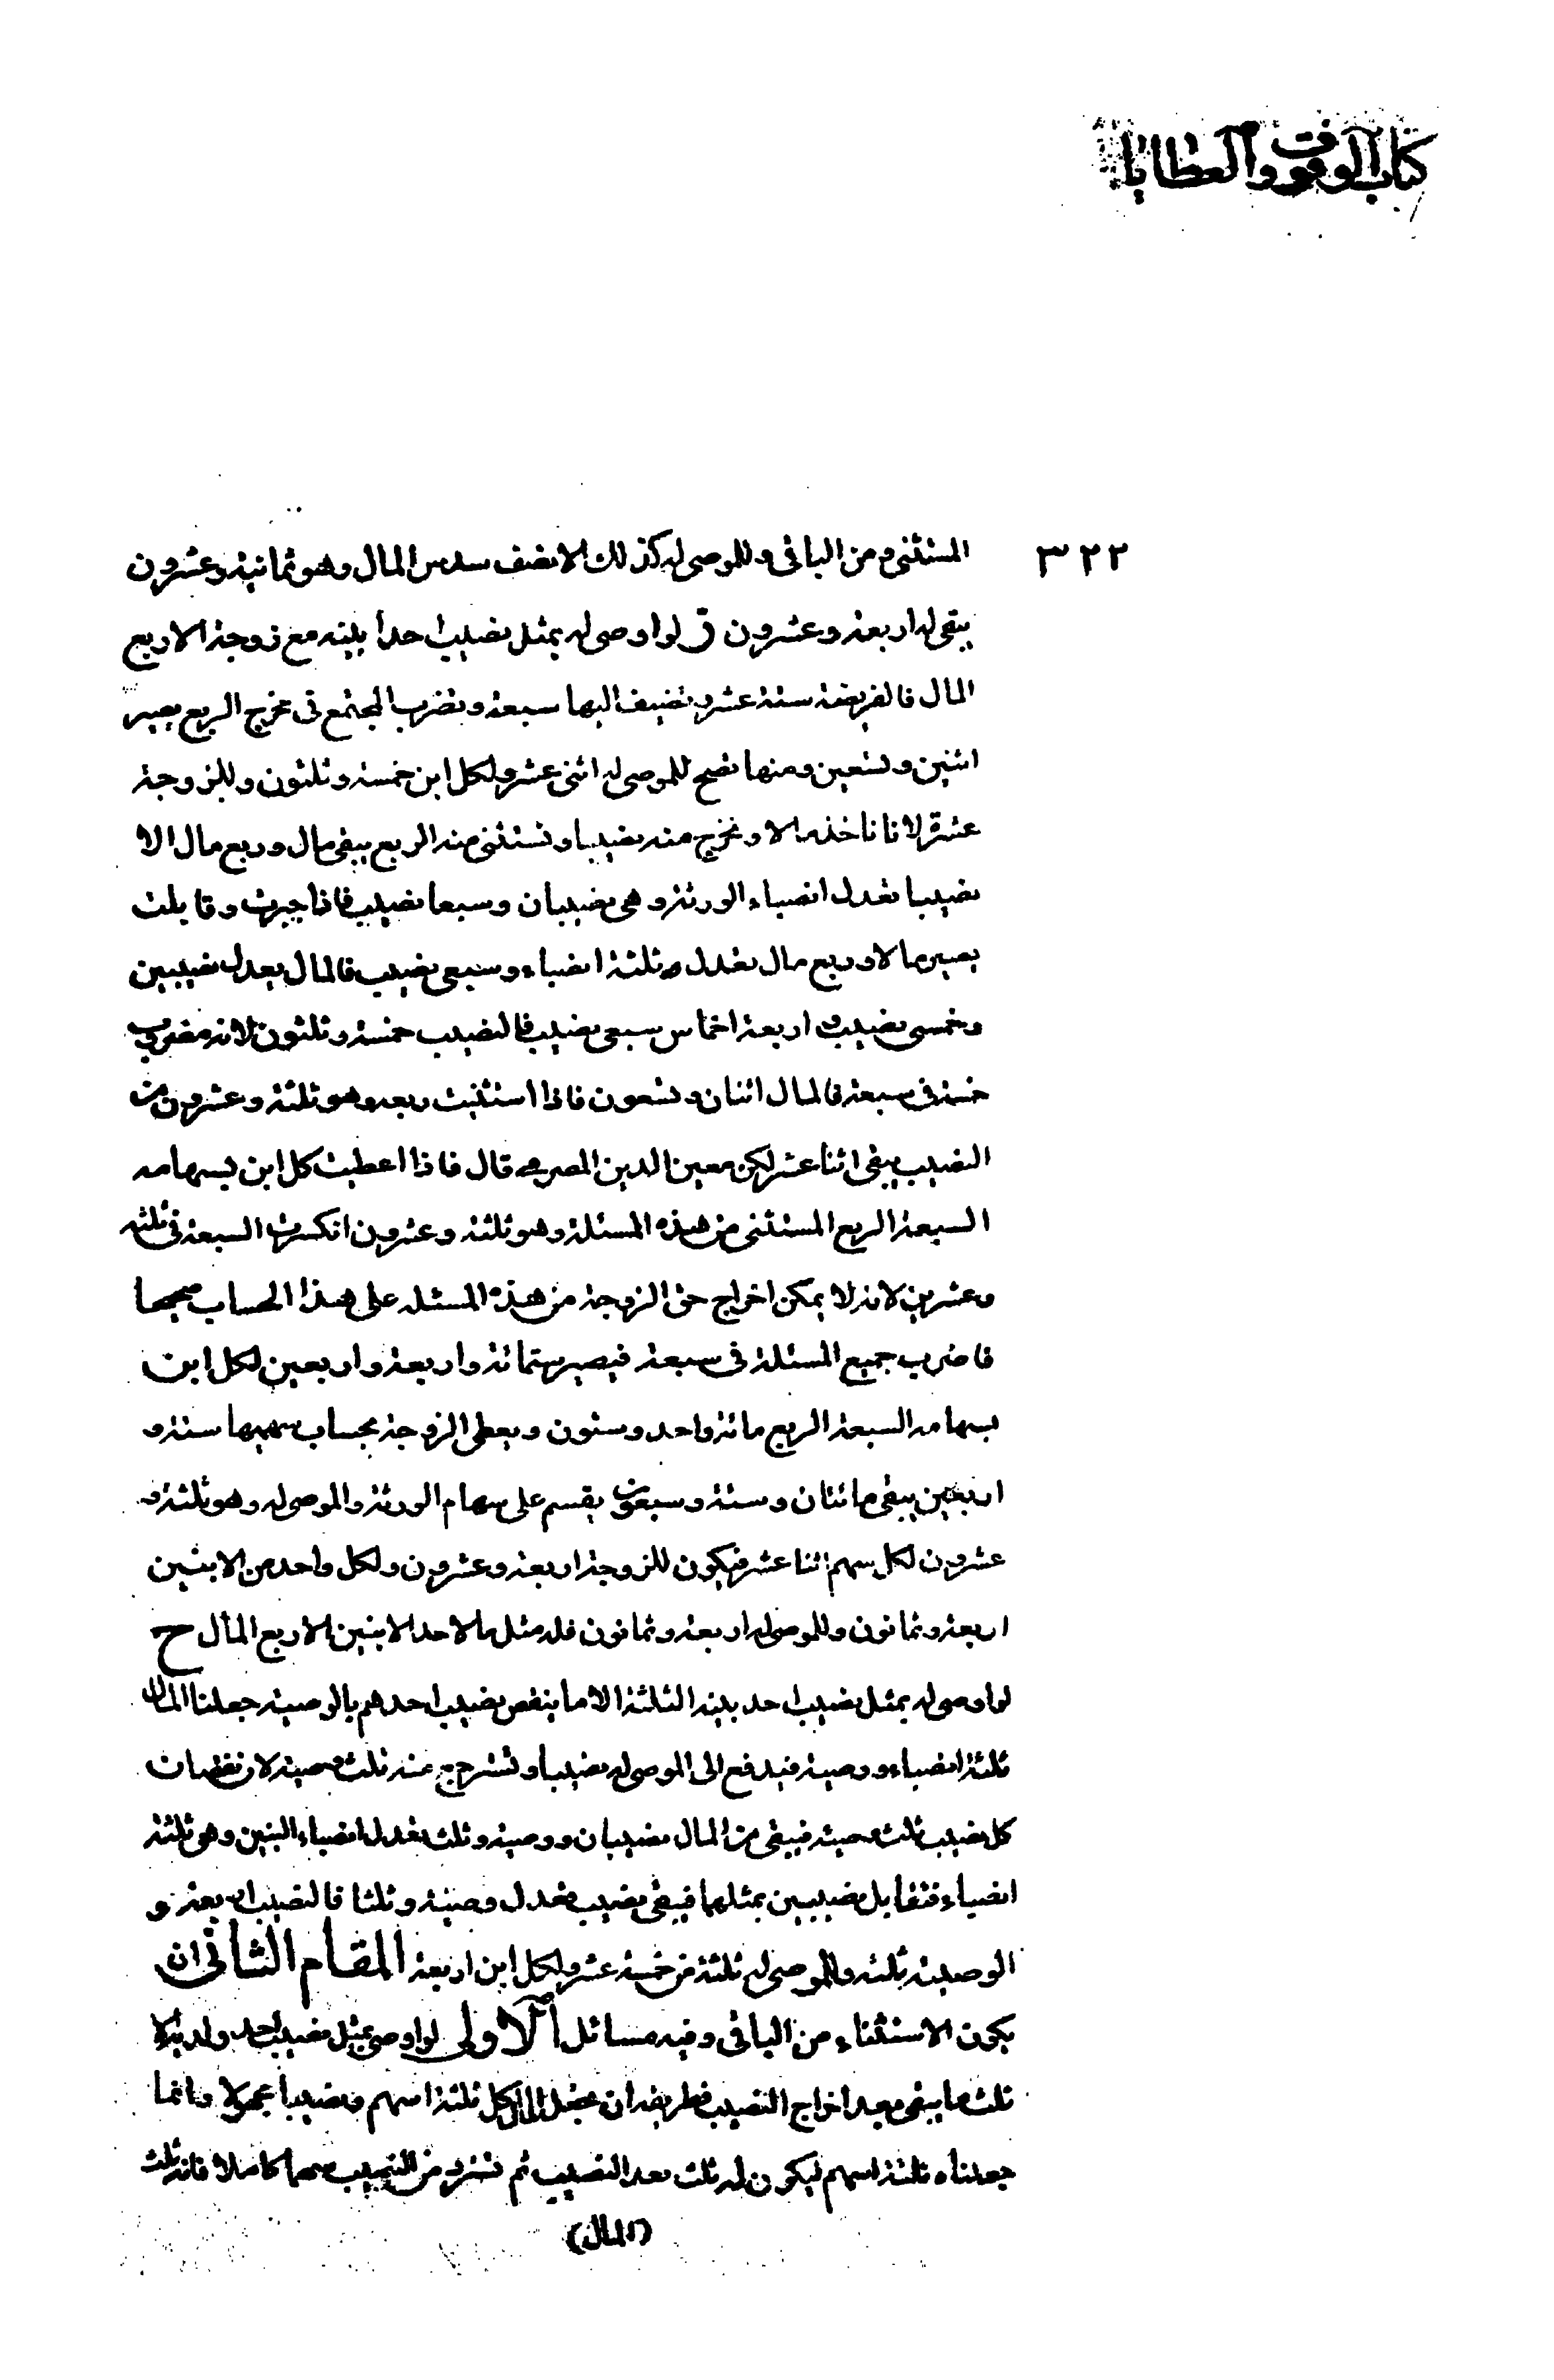 كتاب الوقوف والعطايا
٣٢٢
المستثنى ومن الباقى وللموصى له كذلك الا نصف سدس المال وهو ثمانية وعشرون
يبقى له اربعة وعشرون ق لو اوصى له بمثل نصيب احد ابنيه مع زوجة الا ربع
المال فالفريضة ستة عشر وتضيف اليها سبعة وتضرب المجتمع فى مخرج الربع يصير
اثنين وتسعين ومنها تصح للموصى له اثنى عشر ولكل ابن خمسة وثلثون وللزوجة
عشرة لانا ناخذ مالا ونخرج منه نصيبا ونستثنى منه الربع يبقى مال وربع مال الا
نصيبا تعدل انصباء الورثة وهى نصيبان وسبعا نصيب فاذا جبرت وقابلت
يصير مالا وربع مال تعدل ثلثة انصباء وسبعى نصيب فالمال يعدل نصيبين
وخمسى نصيب واربعة اخماس سبعى نصيب فالنصيب خمسة وثلثون لانه مضروب
خمسة فى سبعة فالمال اثنان وتسعون فاذا استثنيت ربعه وهو ثلثة وعشرون من
النصيب يبقى اثنا عشر لكن معين الدين المصرى قال فاذا اعطيت كل ابن بسهامه
السبعة الربع المستثنى من هذه المسئلة وهو ثلثة وعشرون انكسرت السبعة فى ثلثة
وعشرين لانه لا يمكن اخراج حق الزوجة من هذه المسئلة على هذا الحساب صحيحا
فاضرب جميع المسئلة فى سبعة فيصير ستمائة واربعة واربعين لكل ابن
بسهامه السبعة الربع مائة واحد وستون ويعطى الزوجة بحساب سهميها ستة و
اربعين يبقى مائتان وستة وسبعون يقسم على سهام الورثة والموصى له وهو ثلثة و
عشرون لكل سهم اثنا عشر فيكون للزوجة اربعة وعشرون ولكل واحد من الابنين
اربعة وثمانون وللموصى له اربعة وثمانون فله مثل ما لاحد الابنين الا ربع المال ح
لو اوصى له بمثل نصيب احد بنيه الثلثة الا ما ينقص نصيب احدهم بالوصية جعلنا المال
ثلثة انصباء ووصية فيدفع الى الموصى له نصيبا ونسترجع منه ثلث وصية لان نقصان
كل نصيب ثلث وصية فيبقى من المال نصيبان ووصية وثلث تعدل انصباء البنين وهو ثلثة
انصباء فتقابل نصيبين بمثلهما فيبقى نصيب تعدل وصية وثلثا فالنصيب اربعة و
الوصية ثلثة وللموصى له ثلثة من خمسة عشر ولكل ابن اربعة المقام الثانى ان
يكون الاستثناء من الباقى وفيه مسائل الاولى لو اوصى بمثل نصيب احد ولديه الا
ثلث ما يبقى بعد اخراج النصيب فطريقه ان تجعل المال كل ثلثة اسهم ونصيبا مجهولا وانما
جعلناه ثلثة اسهم ليكون له ثلث بعد النصيب ثم تسترد من النصيب سهما كاملا فانه ثلث
(المال)